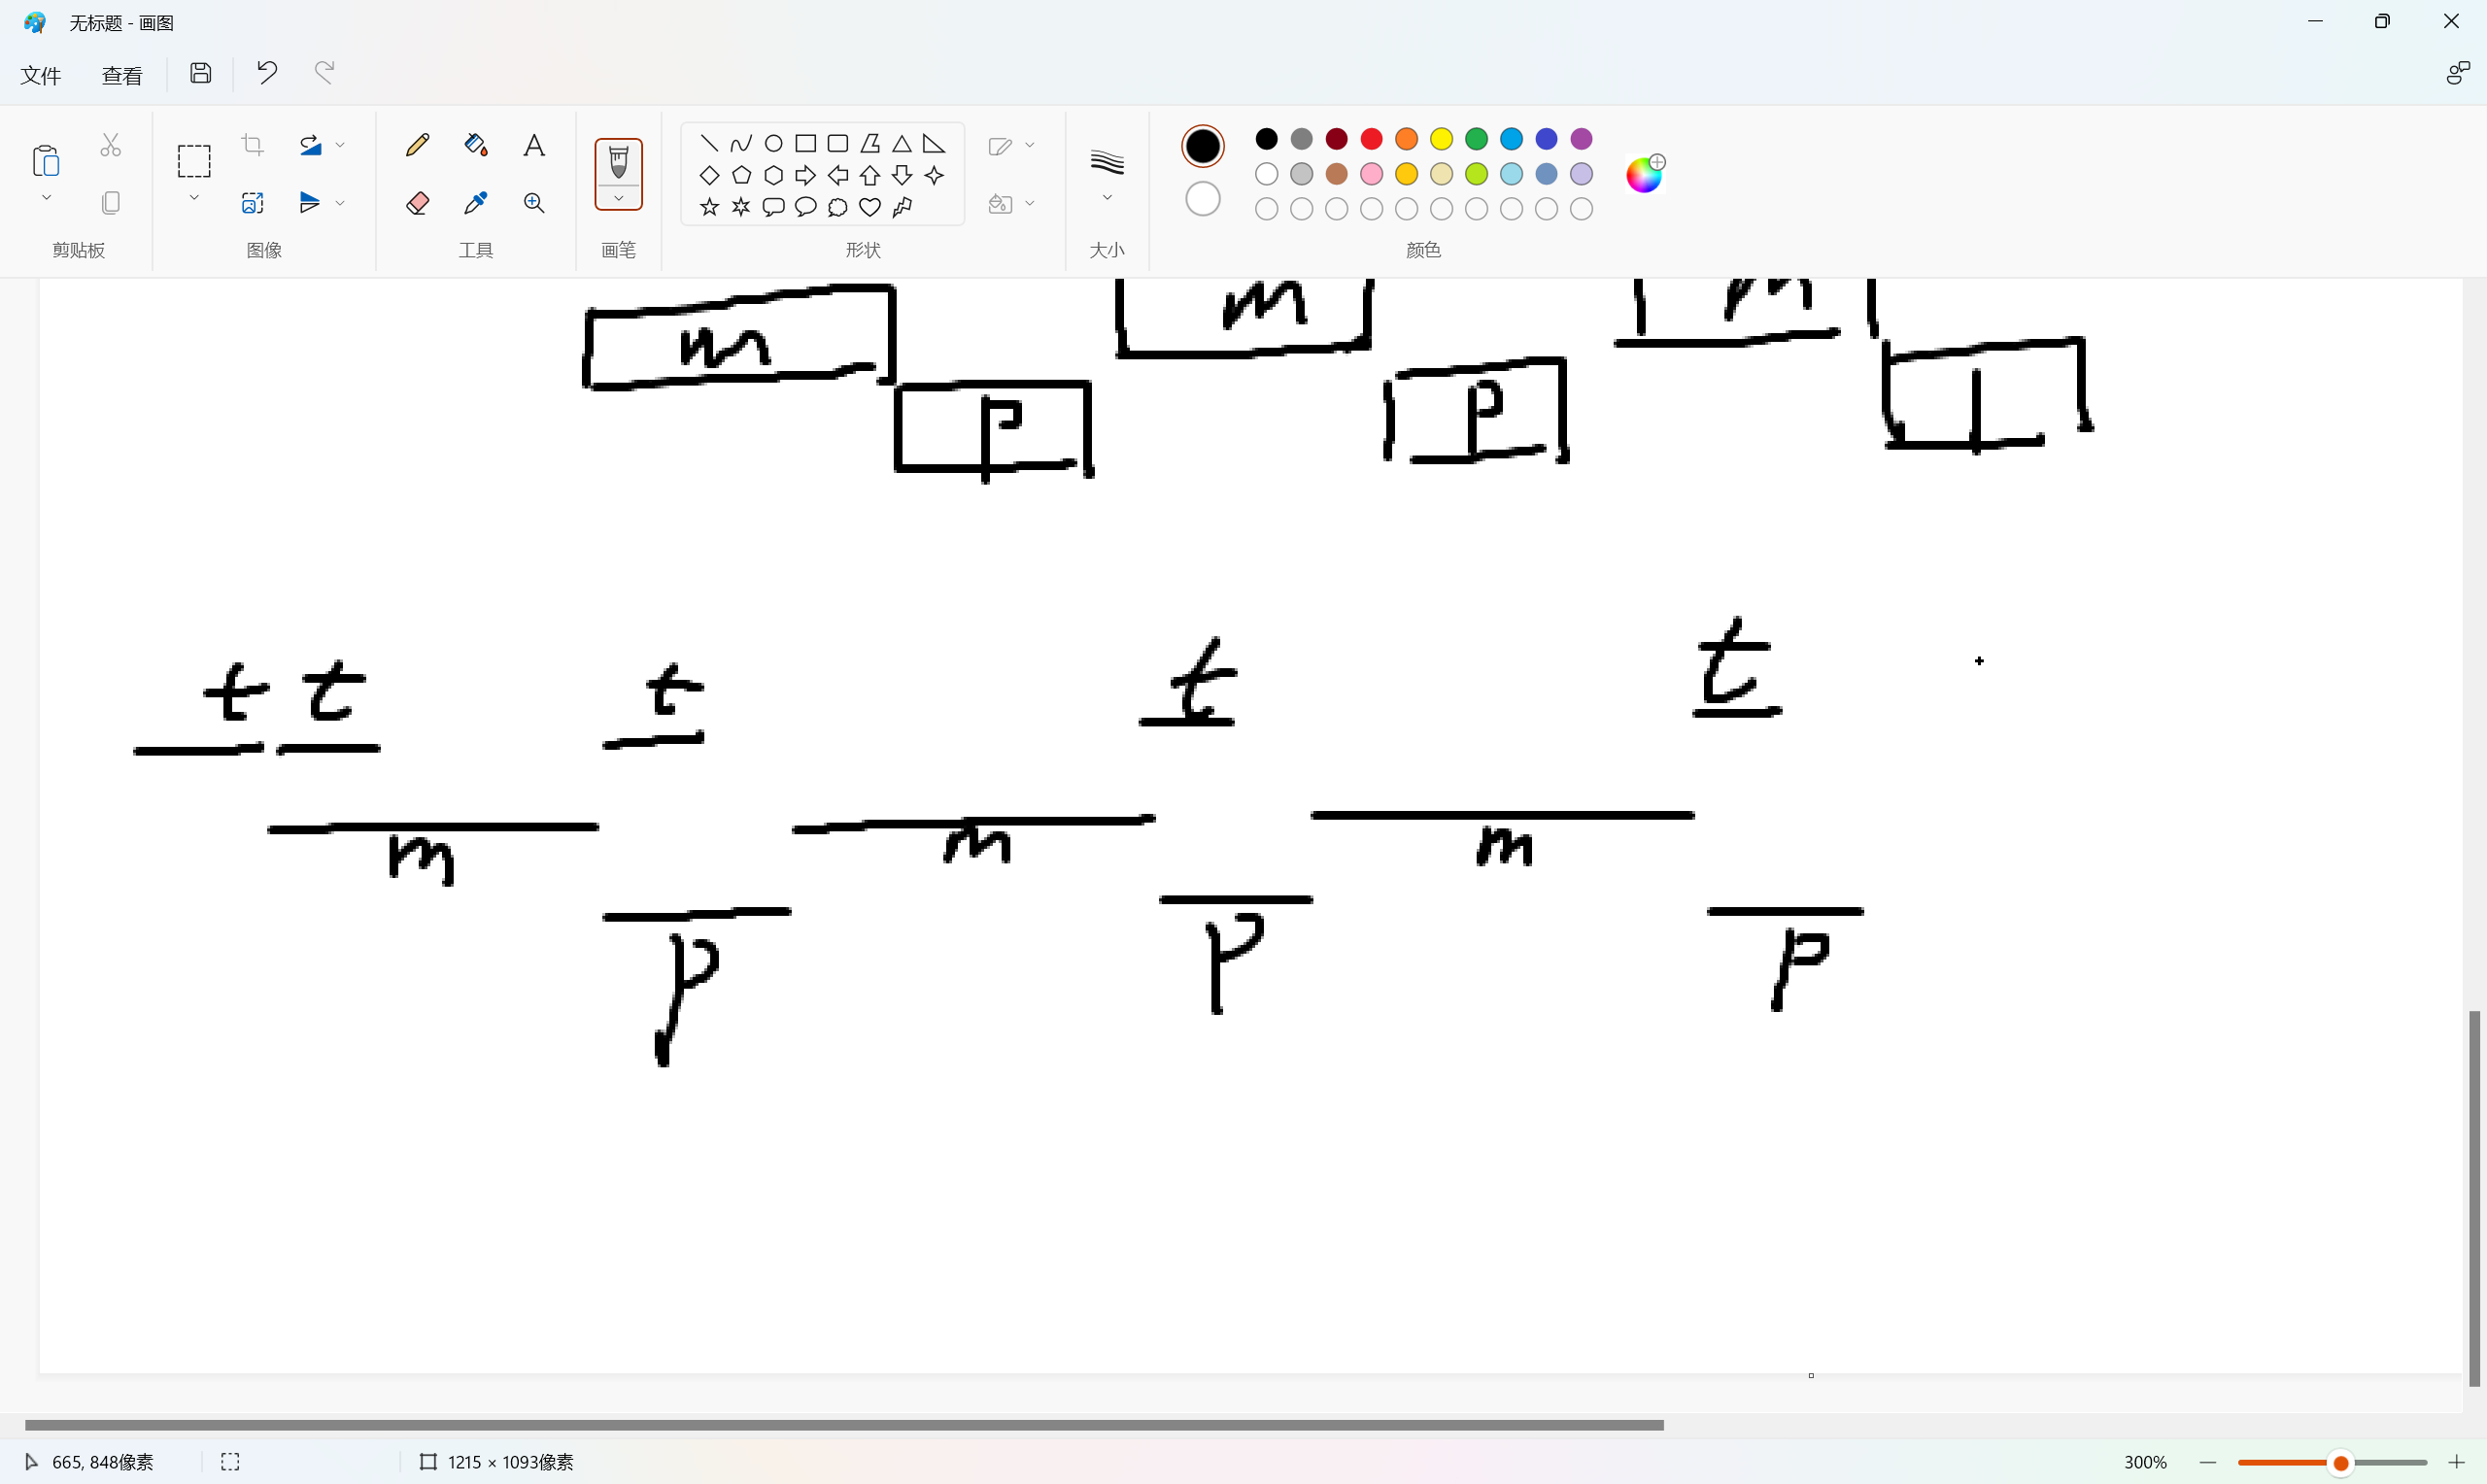 无标题 - 画图
文件 查看
剪贴板 图像 工具 画笔 形状 大小 颜色
m m m
P P
t t t t t
m m m
P P P
665, 848像素 1215 × 1093像素 300%